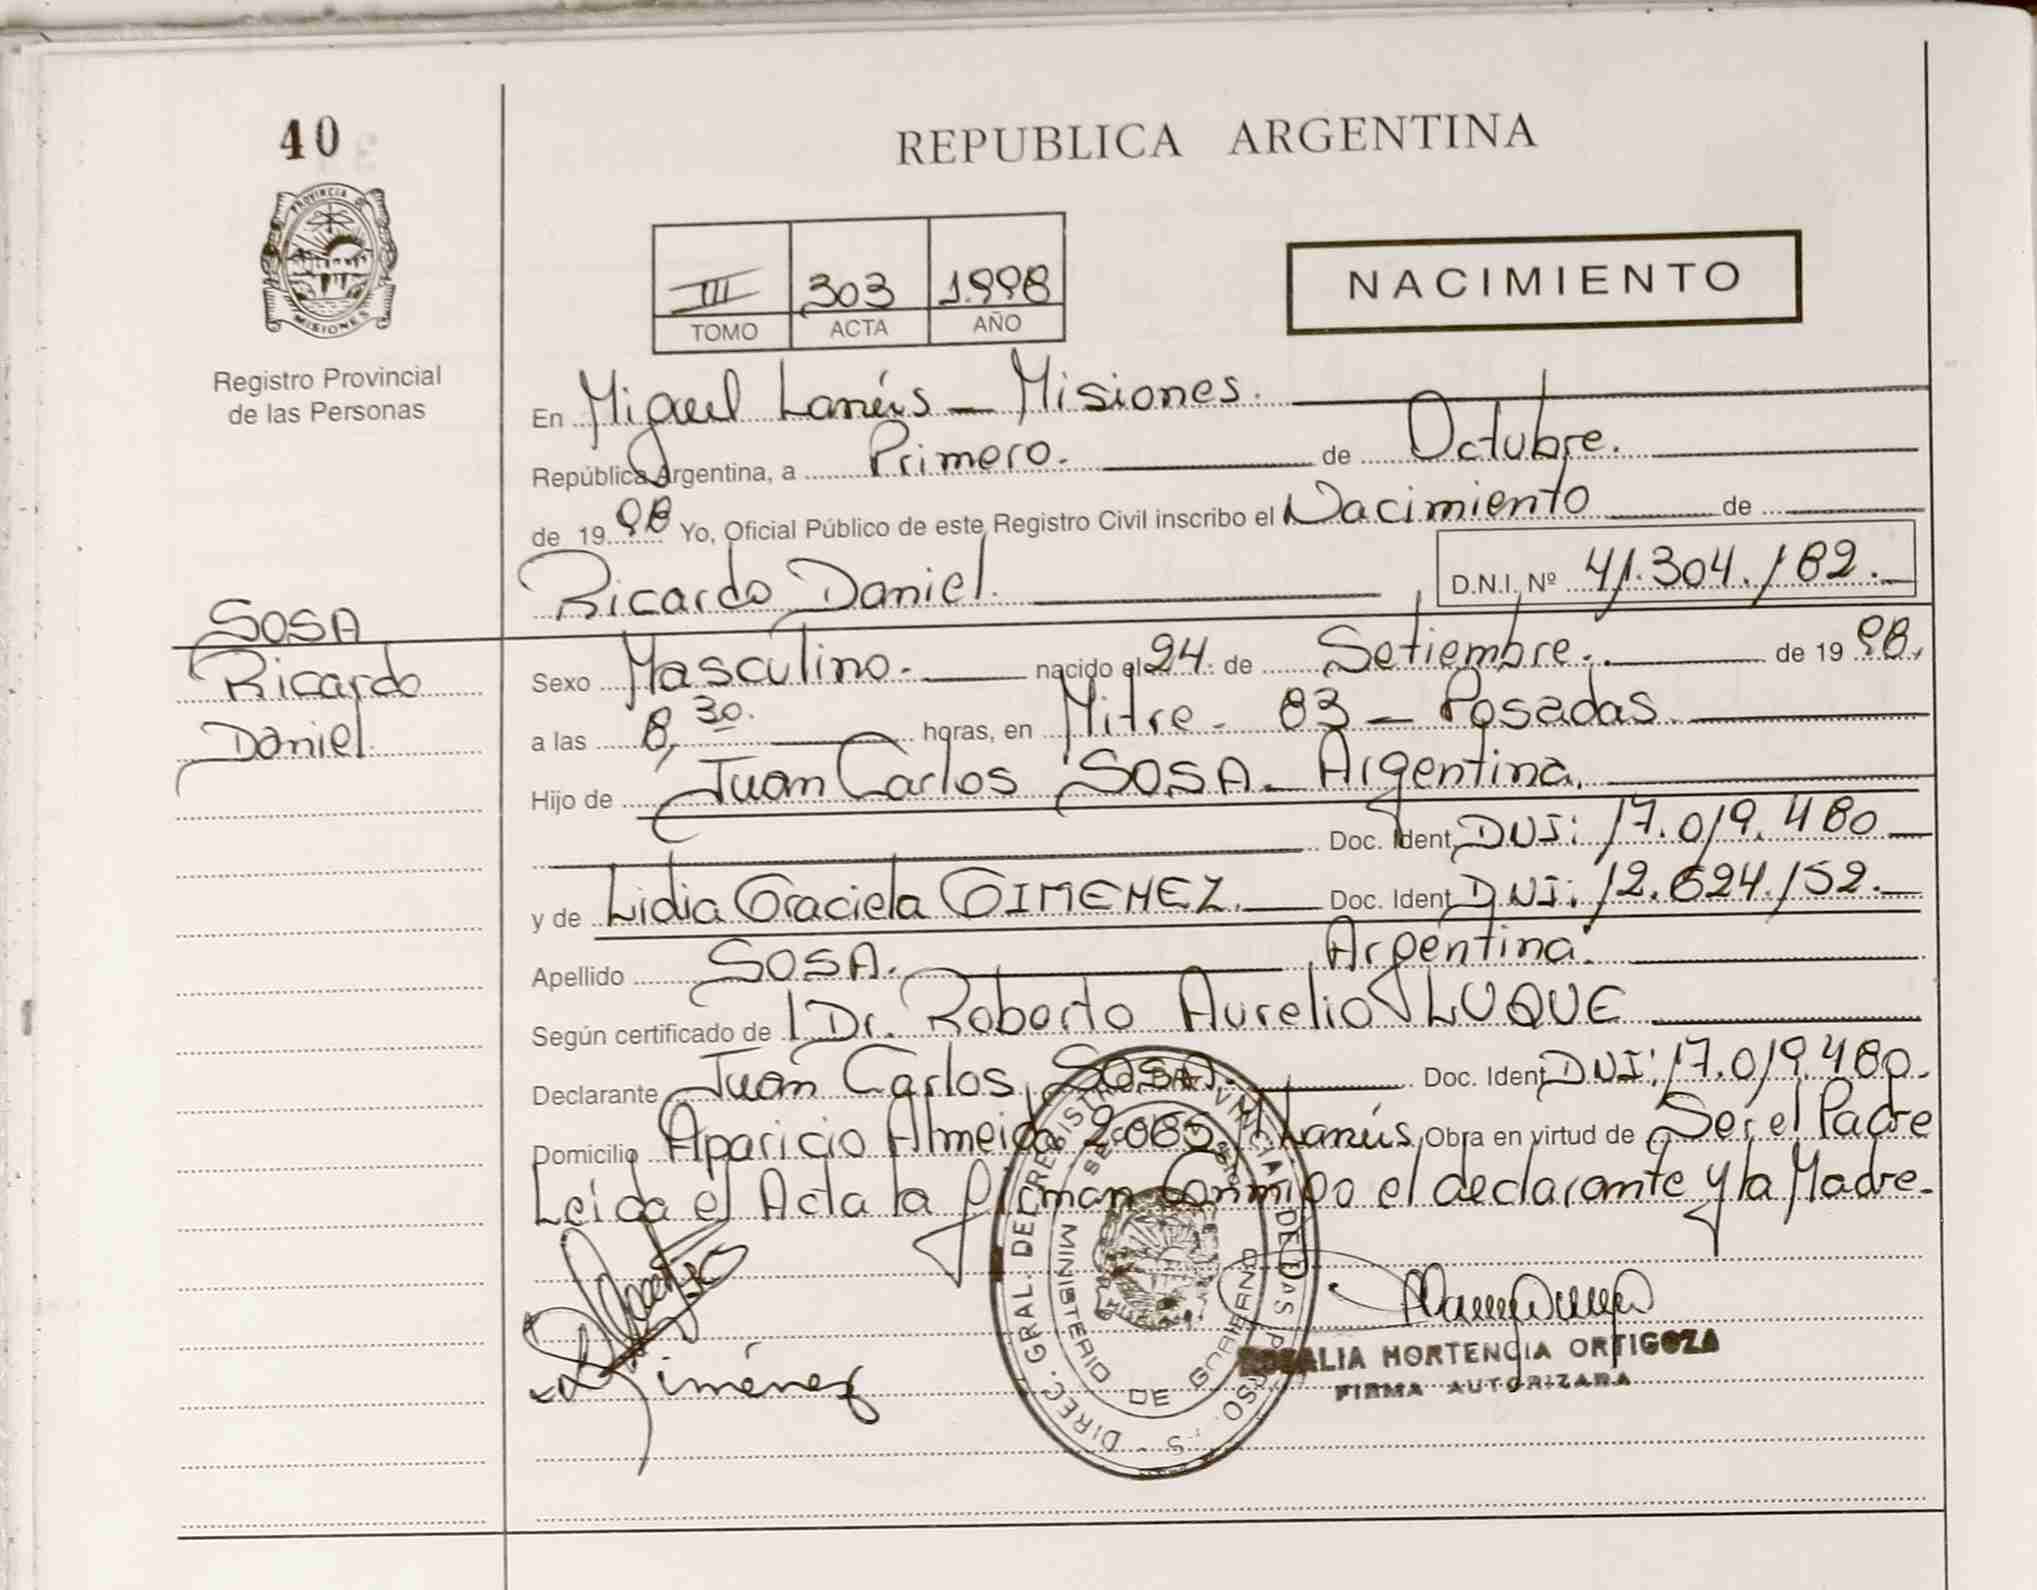 40
PROVINCIA DE
MISIONES
Registro Provincial
de las Personas
SOSA
Ricardo
Daniel
REPUBLICA ARGENTINA
III 303 1.998
TOMO ACTA AÑO
NACIMIENTO
En Miguel Lanús - Misiones.
República Argentina, a Primero. de Octubre.
de 1998 Yo, Oficial Público de este Registro Civil inscribo el Nacimiento de
Ricardo Daniel. , D.N.I. Nº 41.304.182.
Sexo Masculino. nacido el 24. de Setiembre. de 1998,
a las 8,30. horas, en Mitre - 83 - Posadas
Hijo de Juan Carlos SOSA - Argentina.
Doc. Ident. DNI: 17.019.480
y de Lidia Graciela GIMENEZ. Doc. Ident. DNI: 12.624.152.
Apellido SOSA. Argentina.
Según certificado de Dr. Roberto Aurelio LUQUE
Declarante Juan Carlos SOSA. Doc. Ident. DNI: 17.019.480.
Domicilio Aparicio Almeida Lanús, Obra en virtud de Ser el Padre
Leída el Acta la firman conmigo el declarante y la Madre.
Giménez
DIREC. GRAL. DEL REGISTRO PROVINCIAL DE LAS PERSO. S
MINISTERIO DE GOBIERNO
ROSALIA HORTENCIA ORTIGOZA
FIRMA AUTORIZADA